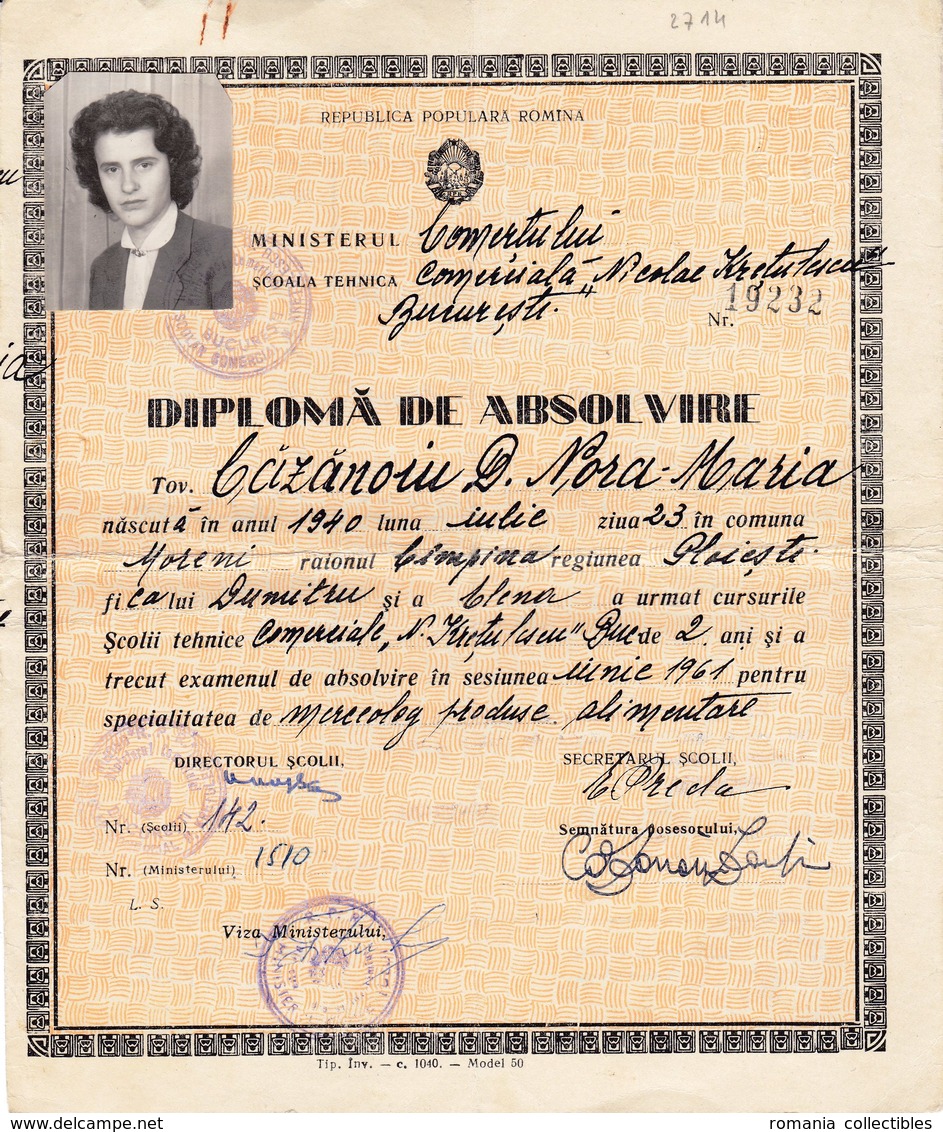 2714
REPUBLICA POPULARĂ ROMINA
MINISTERUL Comerțului
ȘCOALA TEHNICA Comercială „Nicolae Krețulescu"
București.
Nr. 19232
BUCUREȘTI
DIPLOMĂ DE ABSOLVIRE
Tov. Căzănoiu D. Nora-Maria
născută în anul 1940 luna iulie ziua 23 în comuna
Moreni raionul Cîmpina regiunea Ploiești.
fiica lui Dumitru și a Elena a urmat cursurile
Școlii tehnice Comerciale „N. Krețulescu" Buc de 2 ani și a
trecut examenul de absolvire în sesiunea iunie 1961 pentru
specialitatea de merceolog produse alimentare
DIRECTORUL ȘCOLII,
SECRETARUL ȘCOLII,
E Preda
Nr. (Școlii) 142.
Semnătura posesorului,
Nr. (Ministerului) 1510
L. S.
Viza Ministerului,
Tip. Înv. — c. 1040. — Model 50
romania collectibles